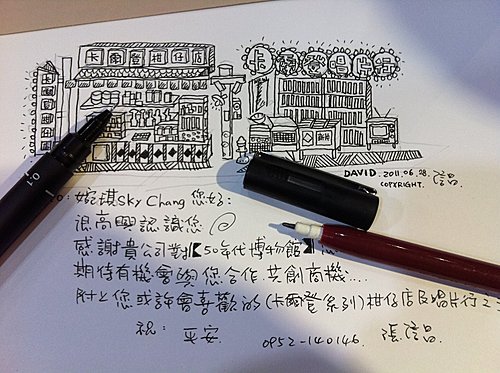 卡爾登柑仔店
卡爾登唱片行
DAVID. 2011.06.28. 信昌
COPYRIGHT.
0.1
To: 婉琪Sky Chang 您好:
很高興認識您
感謝貴公司對【50年代博物館】
期待有機會與您合作.共創商機....
附上您或許會喜歡的(卡爾登系列)柑仔店及唱片行之
祝: 平安. 0952-140146. 張信昌